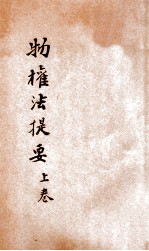 物權法提要上卷